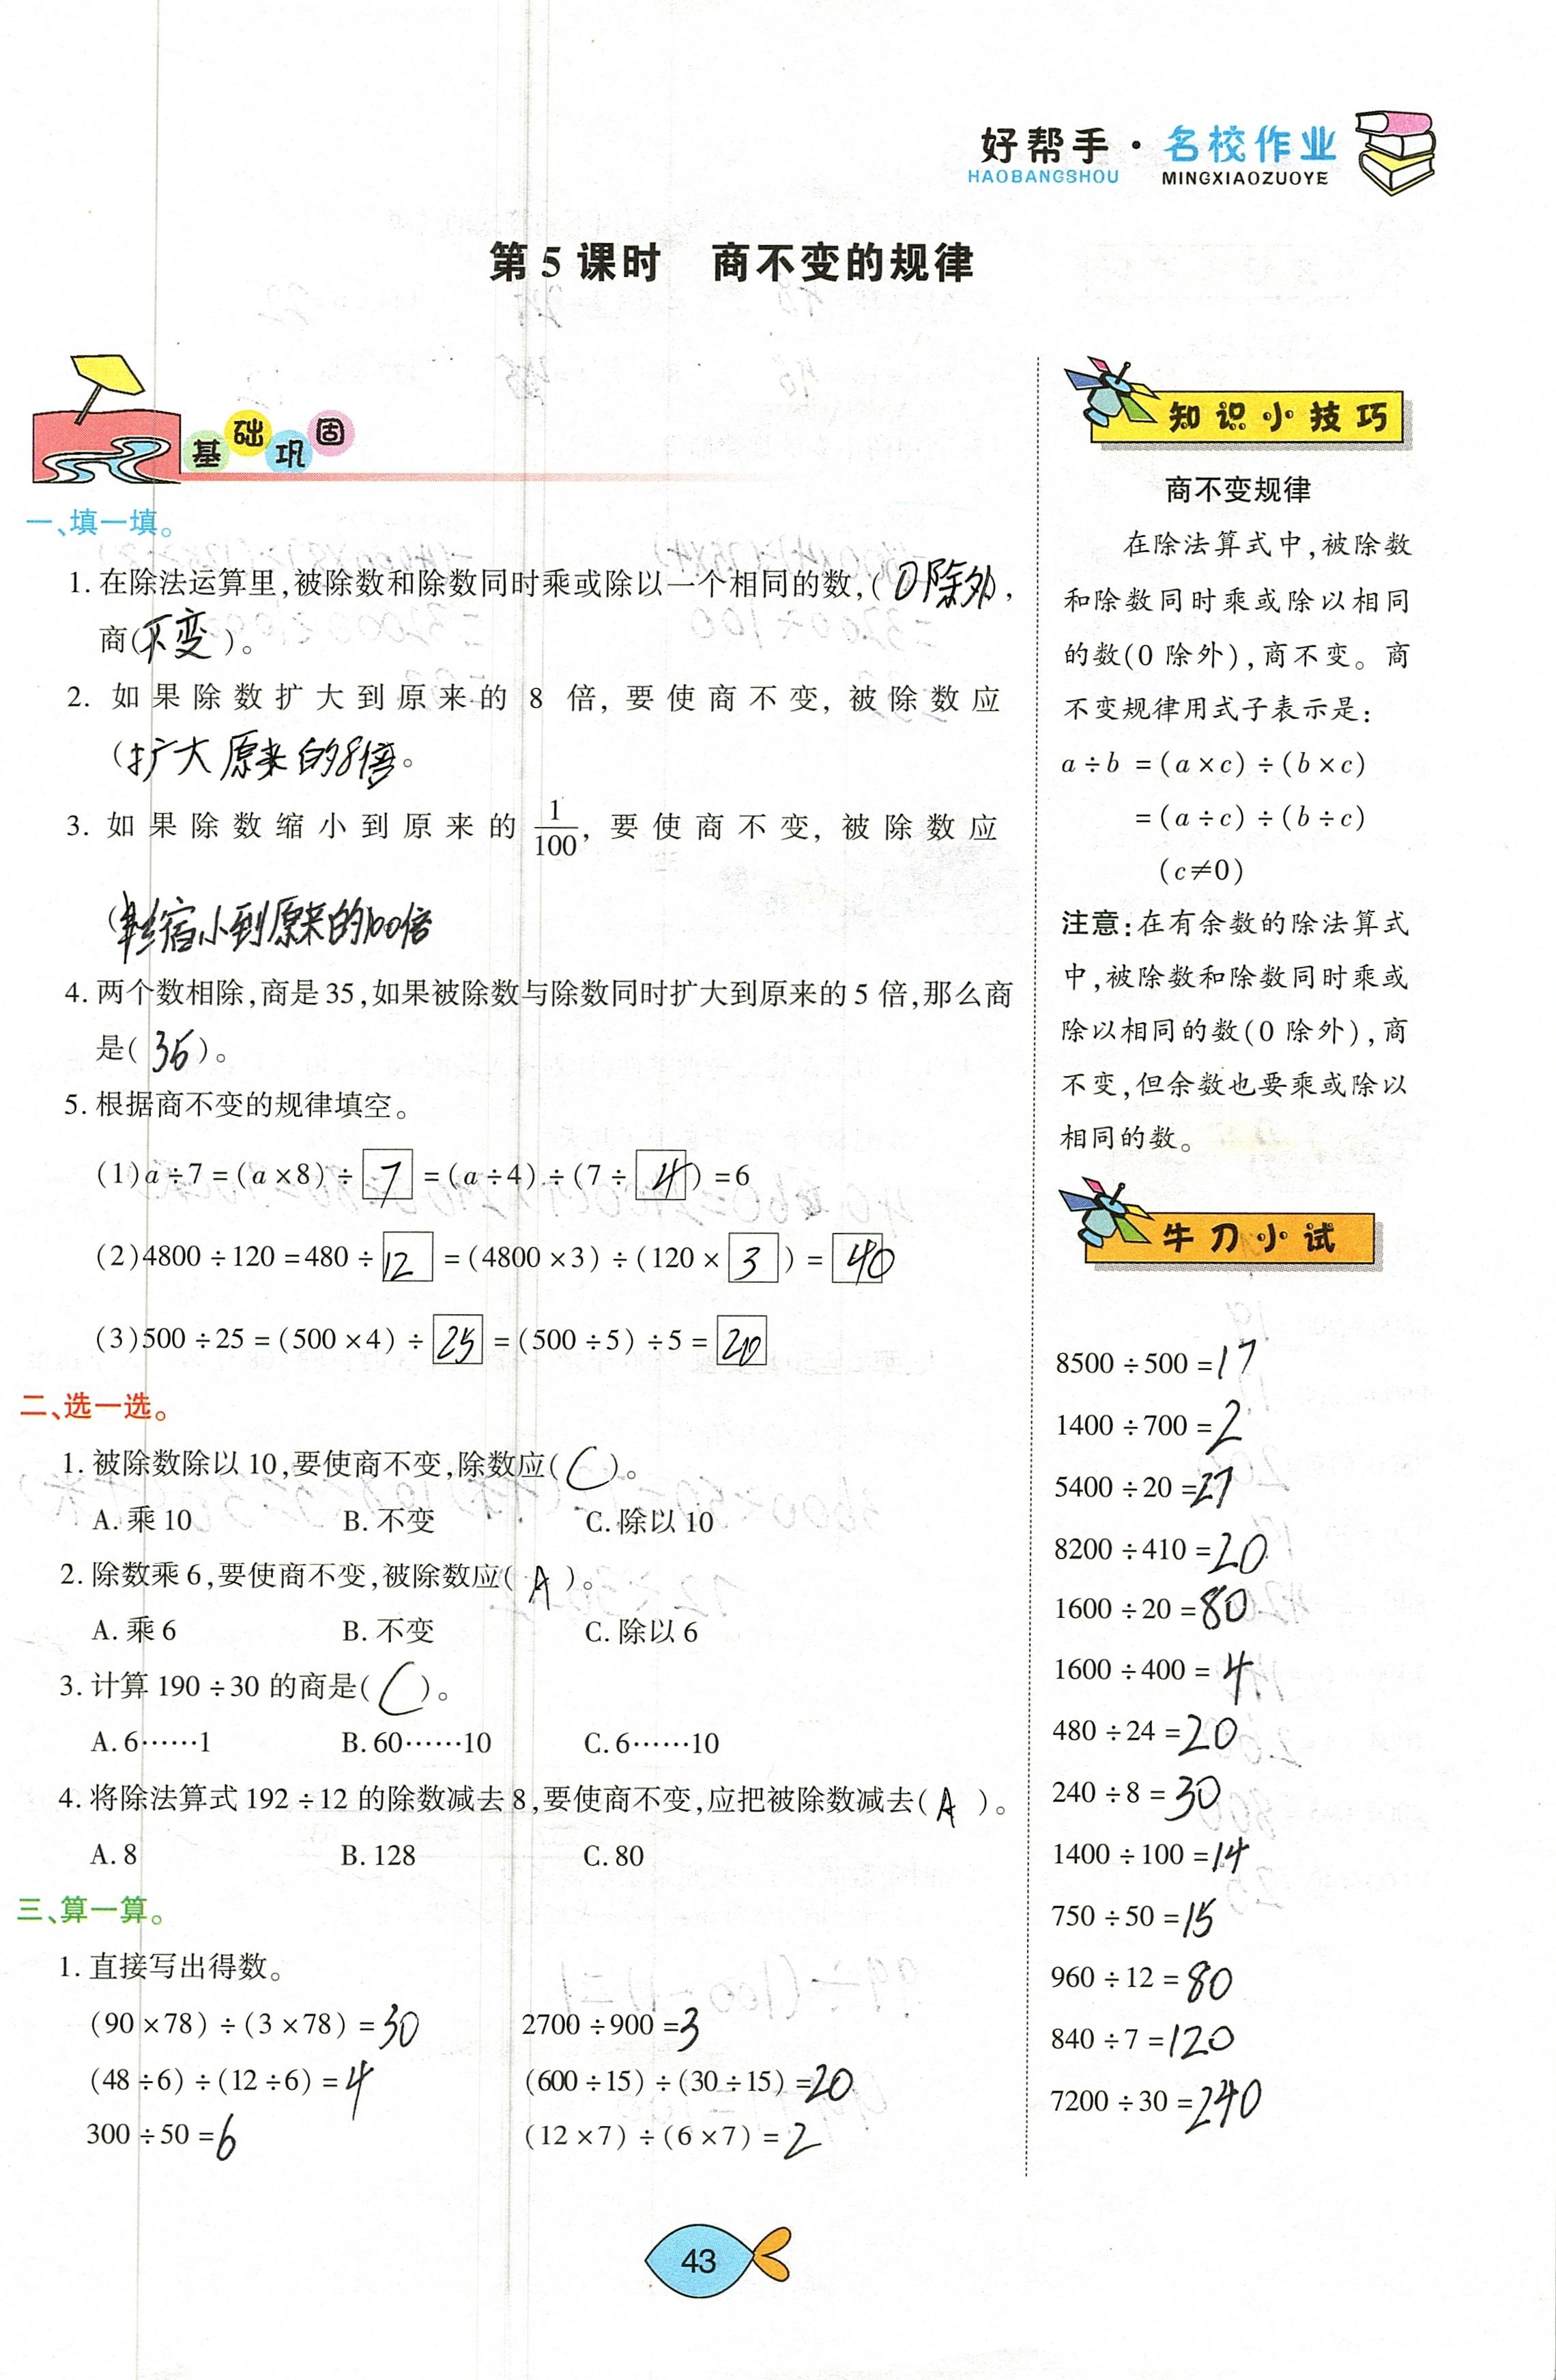 好帮手·名校作业
HAOBANGSHOU MINGXIAOZUOYE
第5课时 商不变的规律
基础巩固
一、填一填。
1. 在除法运算里,被除数和除数同时乘或除以一个相同的数,(0除外),
商(不变)。
2. 如果除数扩大到原来的8倍,要使商不变,被除数应
(扩大原来的8倍。
3. 如果除数缩小到原来的1/100,要使商不变,被除数应
缩小到原来的100倍
4. 两个数相除,商是35,如果被除数与除数同时扩大到原来的5倍,那么商
是(36)。
5. 根据商不变的规律填空。
(1)a÷7=(a×8)÷7=(a÷4)÷(7÷4)=6
(2)4800÷120=480÷12=(4800×3)÷(120×3)=40
(3)500÷25=(500×4)÷25=(500÷5)÷5=20
二、选一选。
1. 被除数除以10,要使商不变,除数应(C)。
A. 乘10 B. 不变 C. 除以10
2. 除数乘6,要使商不变,被除数应(A)。
A. 乘6 B. 不变 C. 除以6
3. 计算190÷30的商是(C)。
A. 6……1 B. 60……10 C. 6……10
4. 将除法算式192÷12的除数减去8,要使商不变,应把被除数减去(A)。
A. 8 B. 128 C. 80
三、算一算。
1. 直接写出得数。
(90×78)÷(3×78)=30 2700÷900=3
(48÷6)÷(12÷6)=4 (600÷15)÷(30÷15)=20
300÷50=6 (12×7)÷(6×7)=2
知识小技巧
商不变规律
在除法算式中,被除数
和除数同时乘或除以相同
的数(0除外),商不变。商
不变规律用式子表示是:
a÷b=(a×c)÷(b×c)
=(a÷c)÷(b÷c)
(c≠0)
注意:在有余数的除法算式
中,被除数和除数同时乘或
除以相同的数(0除外),商
不变,但余数也要乘或除以
相同的数。
牛刀小试
8500÷500=17
1400÷700=2
5400÷20=27
8200÷410=20
1600÷20=80
1600÷400=4
480÷24=20
240÷8=30
1400÷100=14
750÷50=15
960÷12=80
840÷7=120
7200÷30=240
43